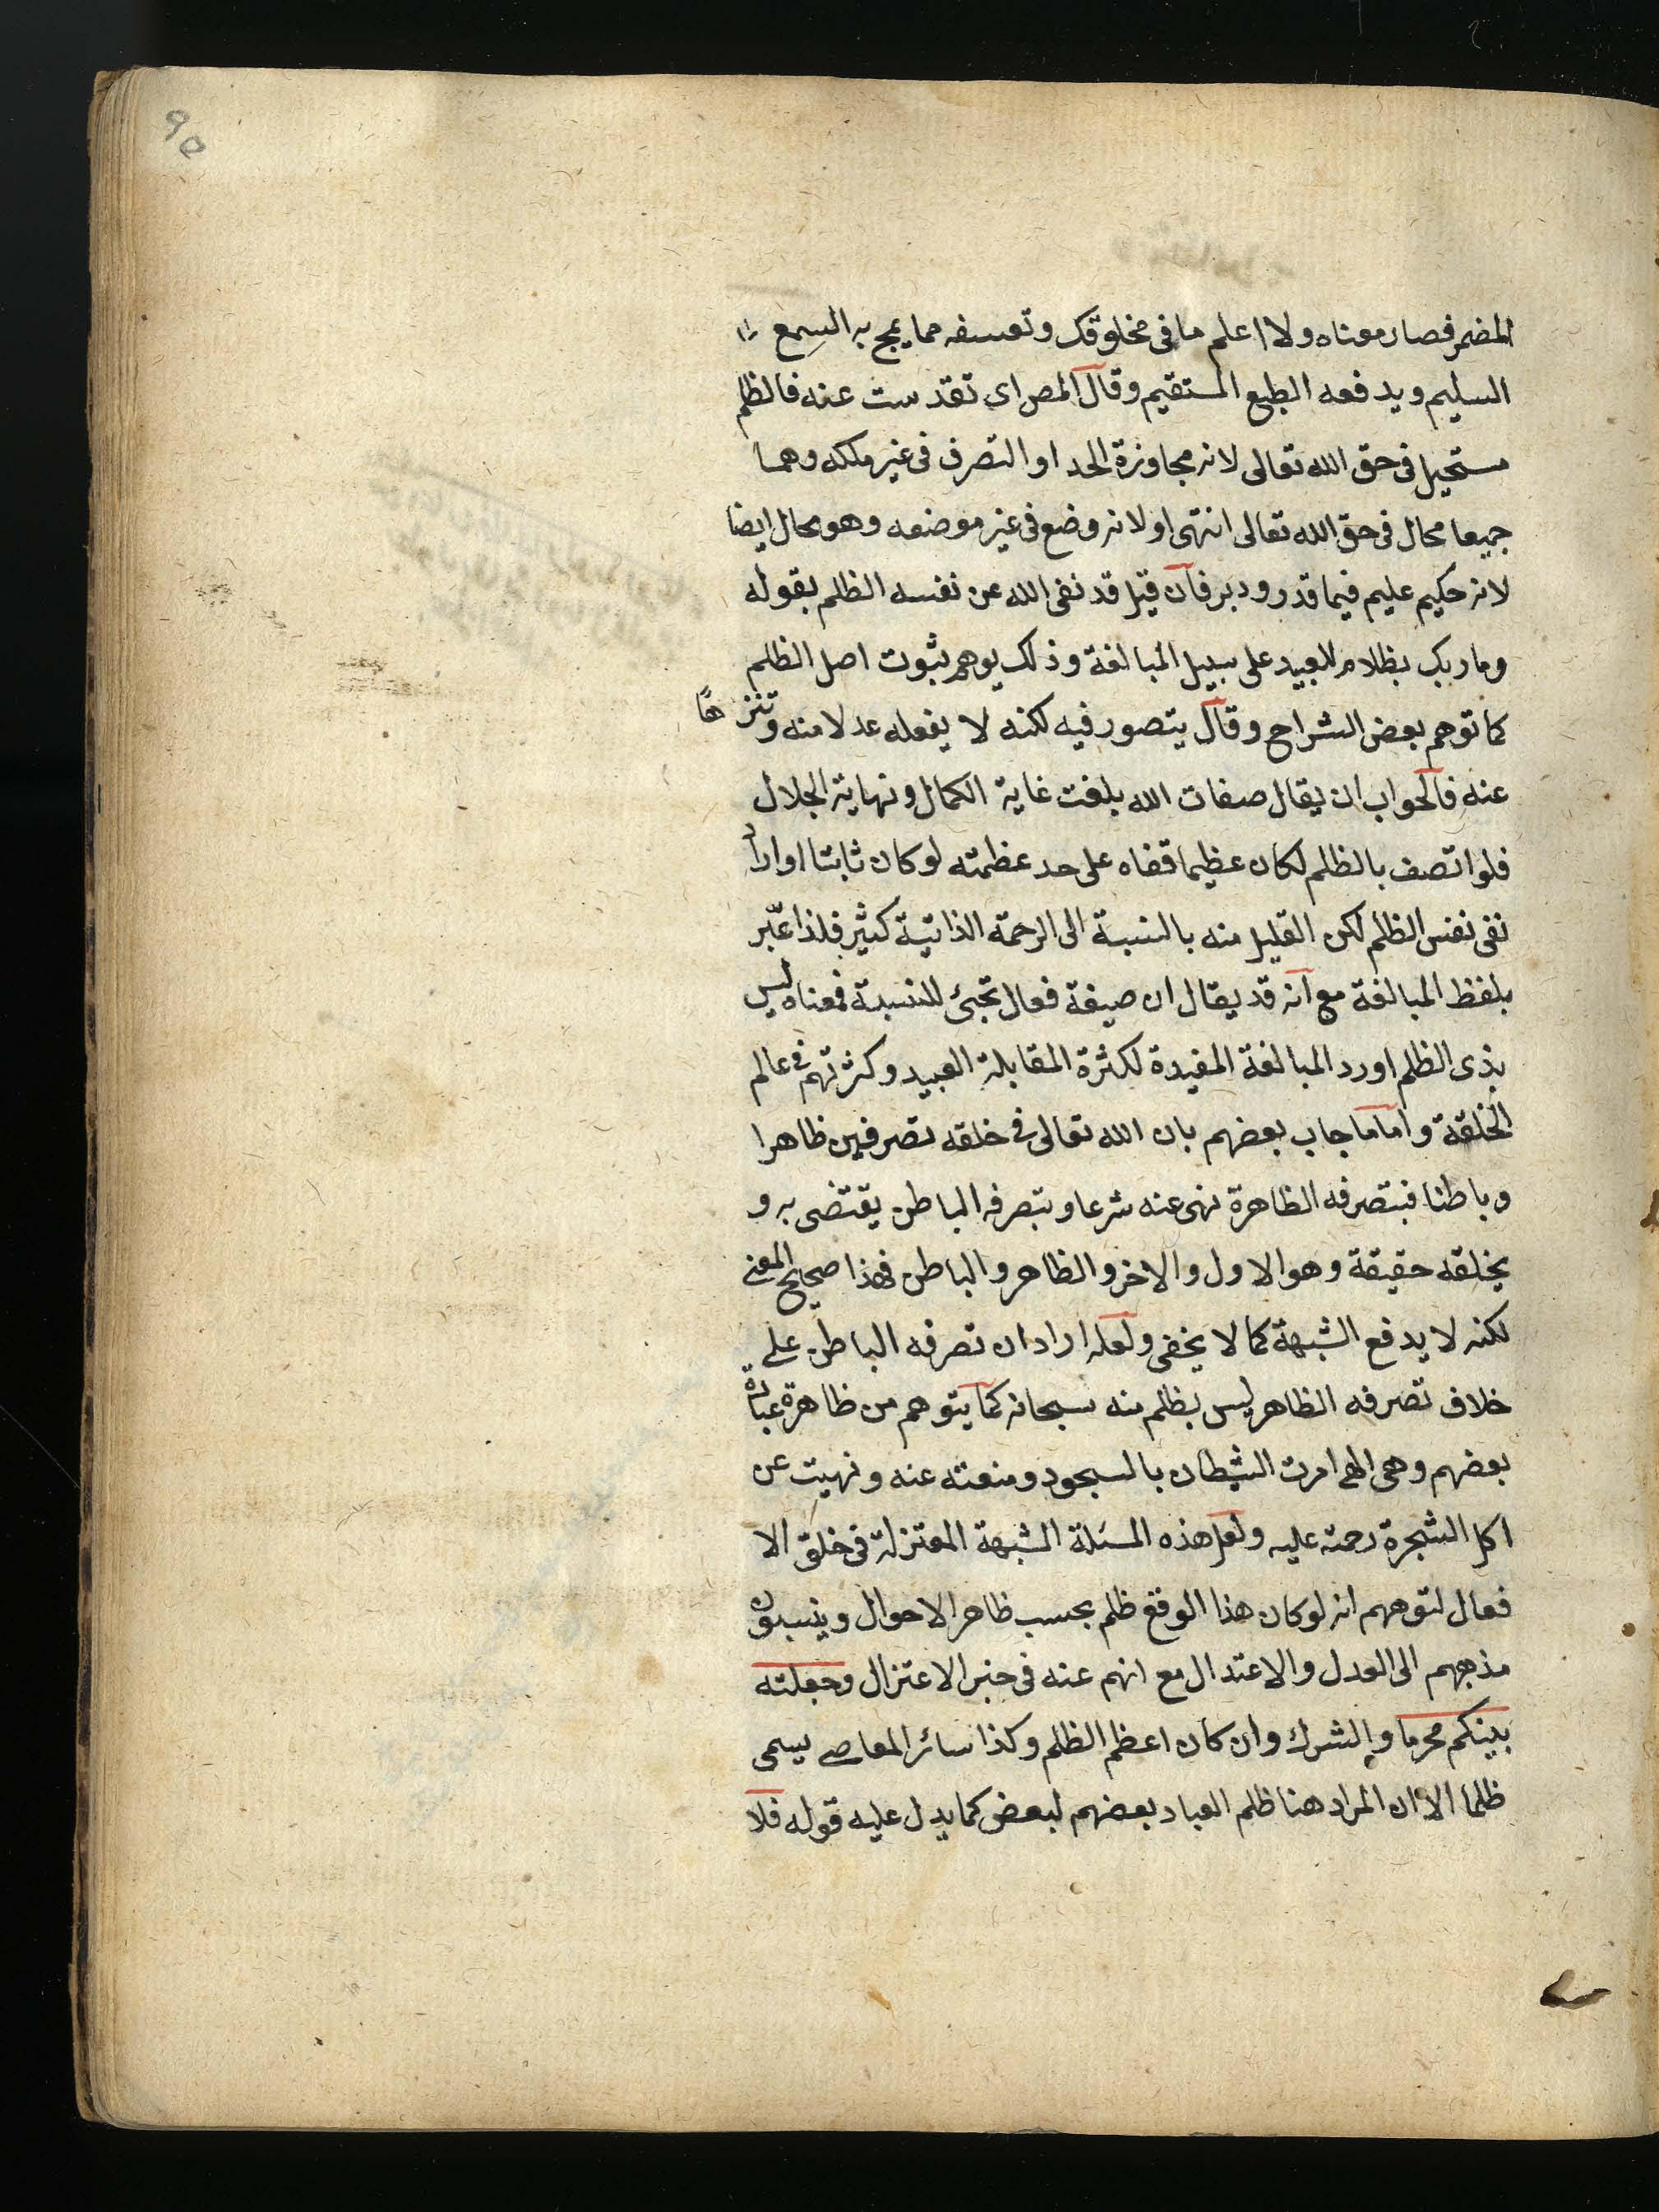 المضمر فصار معناه ولا اعلم ما فى مخلوقك وتعسفه مما يمج به السمع
السليم ويدفعه الطبع المستقيم وقال المص اى تقدست عنه فالظلم
مستحيل فى حق الله تعالى لانه مجاوزة الحد او التصرف فى غير ملكه وهما
جميعا محال فى حق الله تعالى انتهى او لانه وضع فى غير موضعه وهو محال ايضا
لانه حكيم عليم فيما قدر ودبر فان قيل قد نفى الله عن نفسه الظلم بقوله
وما ربك بظلام للعبيد على سبيل المبالغة وذلك يوهم ثبوت اصل الظلم
كما توهم بعض الشراح وقال يتصور فيه لكنه لا يفعله عدلا منه وتنزها
عنه فالجواب ان يقال صفات الله بلغت غاية الكمال ونهاية الجلال
فلو اتصف بالظلم لكان عظيما قفاه على حد عظمته لو كان ثابتا او اراد
نفى نفس الظلم لكن القليل منه بالنسبة الى الرحمة الذاتية كثير فلذا عبّر
بلفظ المبالغة مع انه قد يقال ان صيغة فعال تجئ للنسبة فمعناه ليس
بذى الظلم اورد المبالغة المفيدة لكثرة المقابلة العبيد وكثرتهم فى عالم
الخلقة واما ما جاب بعضهم بان الله تعالى فى خلقه تصرفين ظاهرا
وباطنا فبتصرفه الظاهرة نهى عنه شرعا وبتصرفه الباطن يقتضى به و
يخلقه حقيقة وهو الاول والاخر والظاهر والباطن فهذا صحيح المعنى
لكنه لا يدفع الشبهة كما لا يخفى ولعله اراد ان تصرفه الباطن على
خلاف تصرفه الظاهر ليس بظلم منه سبحانه كما يتوهم من ظاهرة عبارة
بعضهم وهى الهى امرت الشيطان بالسجود ومنعته عنه ونهيت عن
اكل الشجرة رحمة عليه ولعل هذه المسئلة الشبهة المعتزلة فى خلق الا
فعال لتوهمهم انه لو كان هذا الوقع ظلم بحسب ظاهر الاحوال وينسبون
مذهبهم الى العدل والاعتدال مع انهم عنه فى حيز الاعتزال وجعلته
بينكم محرما والشرك وان كان اعظم الظلم وكذا سائر المعاصى يسمى
ظلما الا ان المراد هنا ظلم العباد بعضهم لبعض كما يدل عليه قوله فلا